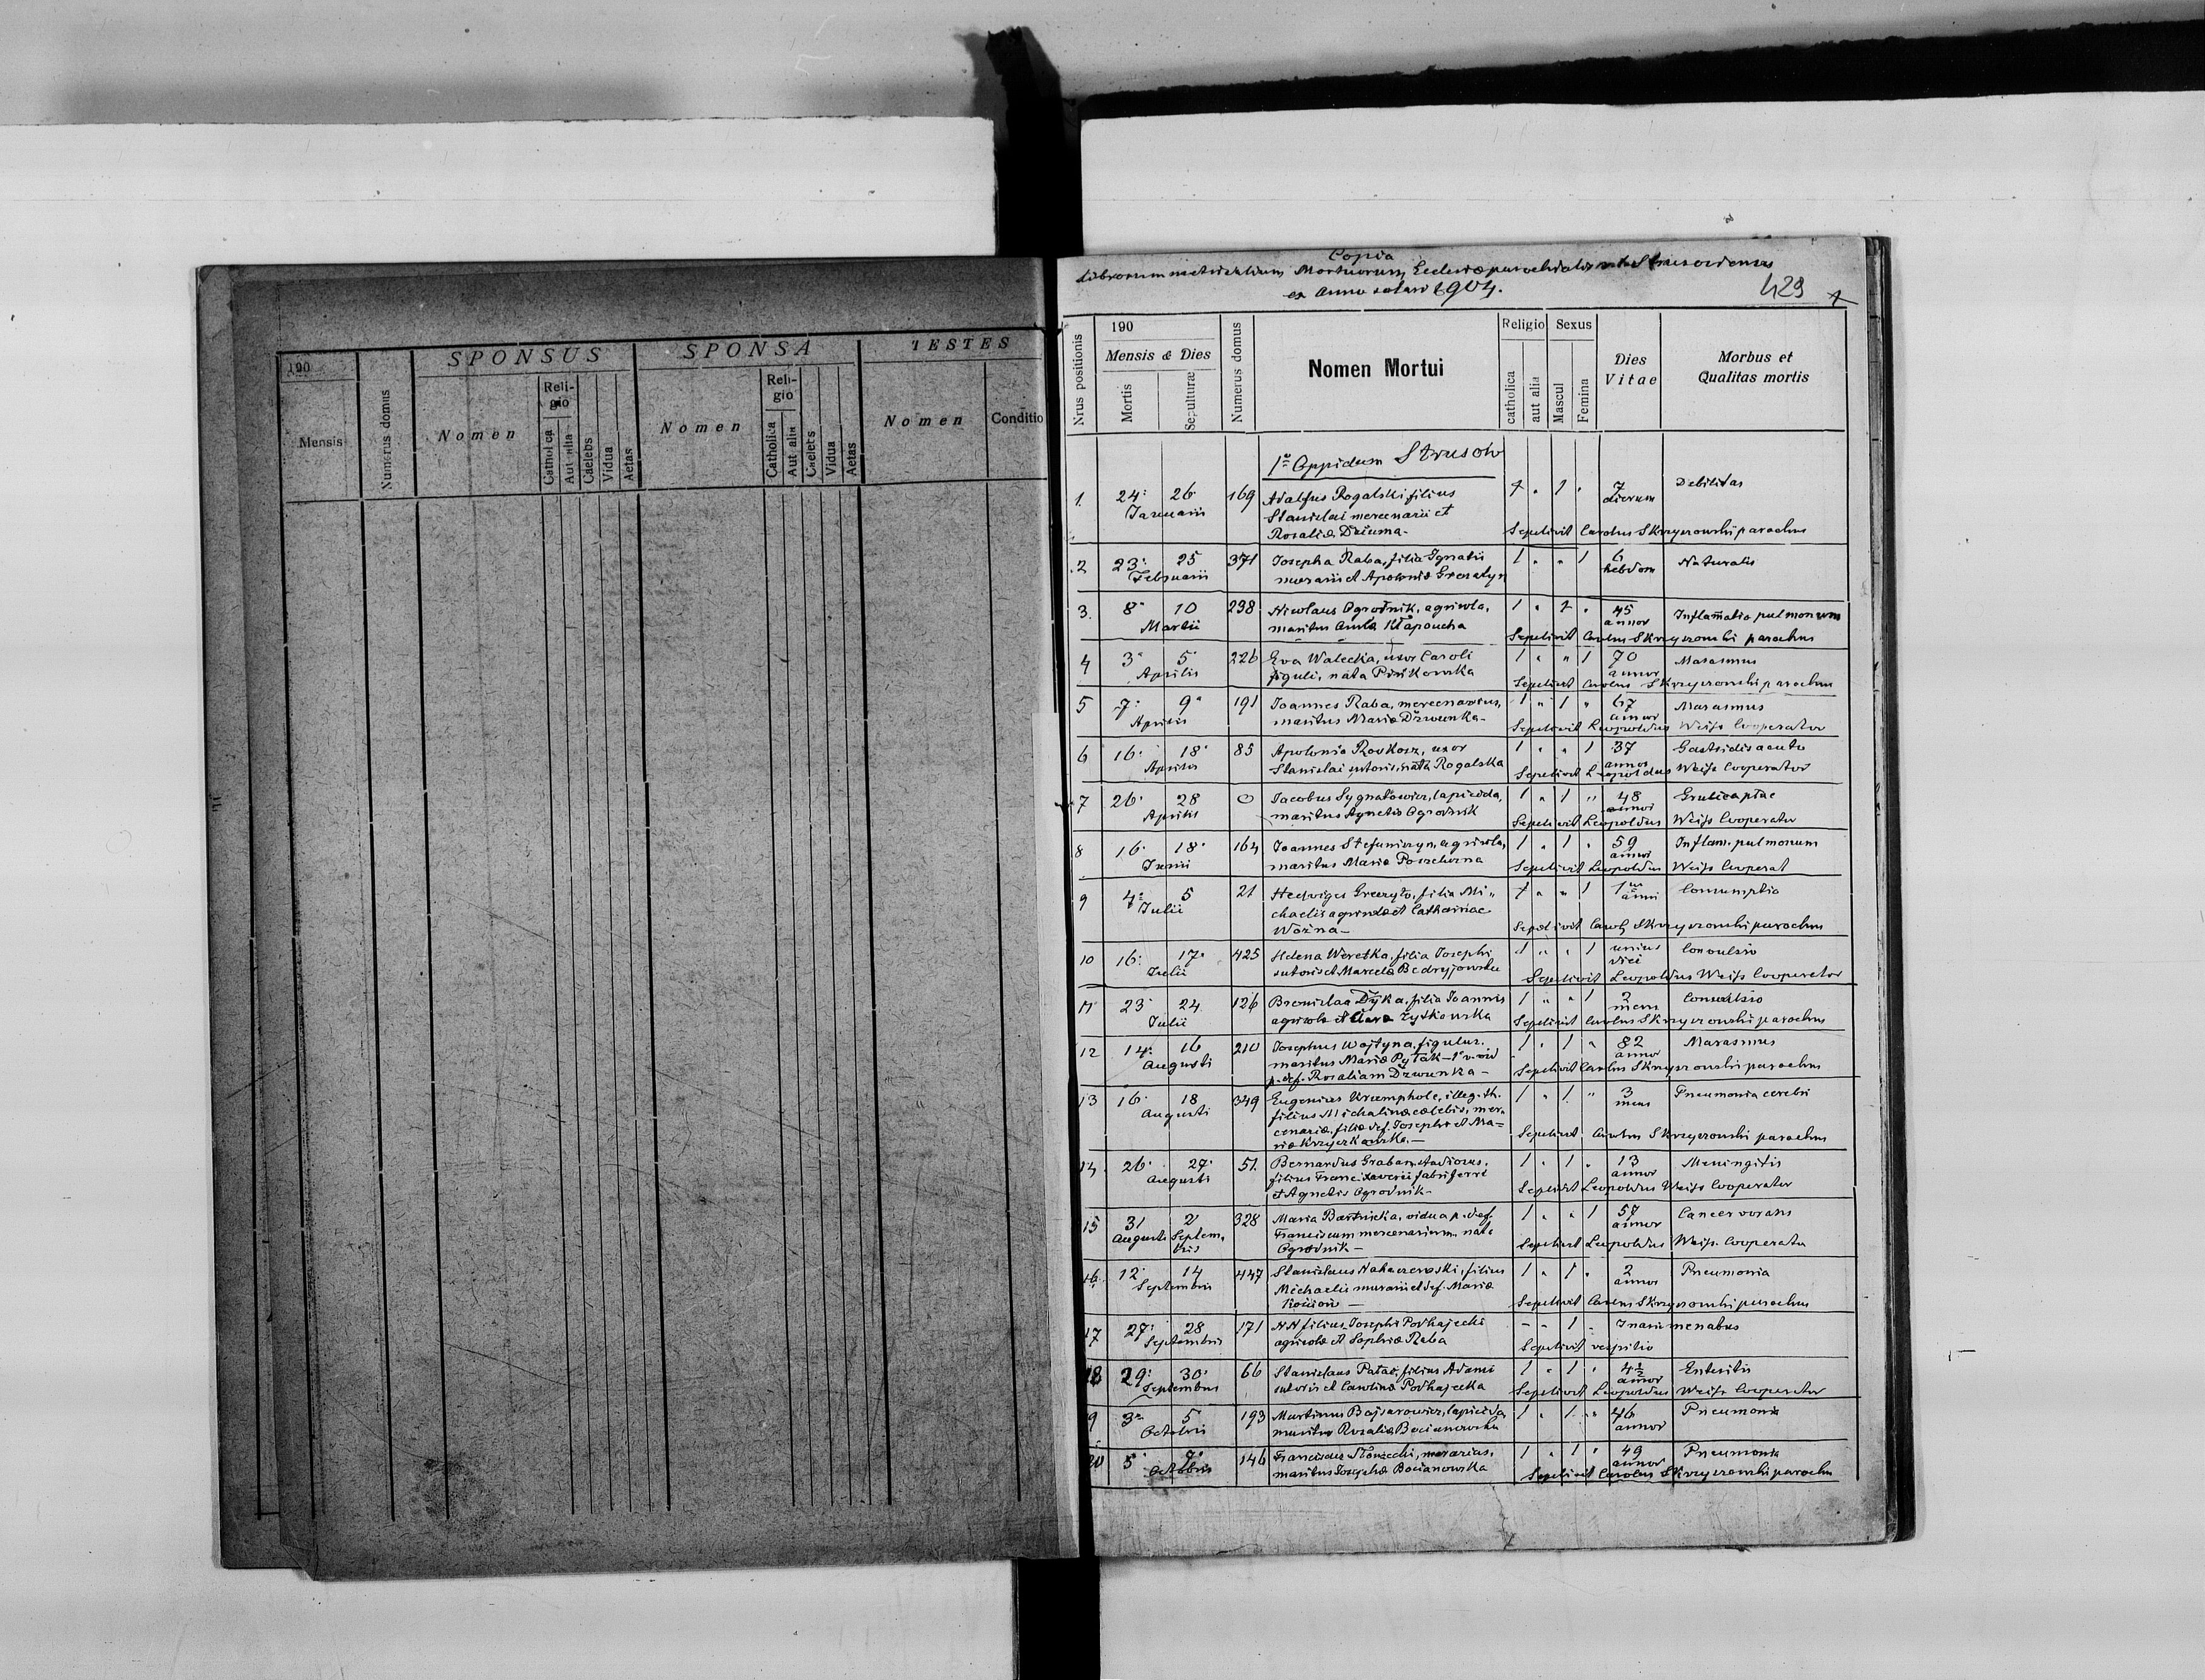 190
Mensis
Numerus domus
SPONSUS
Nomen
Reli-
gio
Catholica
Aut alia
Caelebs
Vidua
Aetas
SPONSA
Nomen
Reli-
gio
Catholica
Aut alia
Caelebs
Vidua
Aetas
TESTES
Nomen
Conditio
Copia
Librorum metricalium Mortuorum Ecclesiæ parochialis
ex Anno 1904.
429
Nrus positionis
190
Mensis & Dies
Mortis
Sepulturæ
Numerus domus
Nomen Mortui
Religio
catholica
aut alia
Sexus
Mascul
Femina
Dies
Vitae
Morbus et
Qualitas mortis
1º Oppidum Strusów
1. 24 26 169 Adalfus Rogalski filius 1 " 1 " 7 Debilitas
Januarii Stanislai mercenarii et dierum
Rosaliæ Dziuma - Sepelivit Carolus Skrzyszowski parochus
2 23 25 371 Josepha Raba, filia Ignatii 1 " " 1 6 Naturalis
Februarii murarii et Apoloniæ hebdom
3. 8 10 238 Nicolaus Ogrodnik, agricola, 1 " 1 " 45 Inflamatio pulmonum
Martii maritus Annæ Kłapoucha annor
Sepelivit Carolus Skrzyszowski parochus
4 3 5 226 Eva Walecka, uxor Caroli 1 " " 1 70 Marasmus
Aprilis figuli, nata Pinkowska annor
Sepelivit Carolus Skrzyszowski parochus
5 7 9 191 Joannes Raba, mercenarius, 1 " 1 " 67 Marasmus
Aprilis maritus Mariæ Dzwunka - annor
Sepelivit Leopoldus Weiss Cooperator
6 16 18 85 Apolonia Rovkosz, uxor 1 " " 1 37 Gastridis acuta
Aprilis Stanislai sutoris, nata Rogalska annor
Sepelivit Leopoldus Weiss Cooperator
7 26 28 0 Jacobus Sygnatowicz, lapicida, 1 " 1 " 48
Aprilis maritus Agnetis Ogrodnik annor
Sepelivit Leopoldus Weiss Cooperator
8 16 18 164 Joannes Stefaniszyn, agricola, 1 " 1 " 59 Inflam. pulmonum
Junii maritus Mariæ annor
Sepelivit Leopoldus Weiss Cooperat
9 4 5 21 Hedvigis filia Mi- 1 " " 1 1 anni Consumptio
Julii chaelis agricolæ et Catharinae
Woźna - Sepelivit Carol Skrzyszowski parochus
10 16 17 425 Helena Weretka, filia Josephi 1 " " 1 unius Convulsio
Julii sutoris et Marcelæ diei
Sepelivit Leopoldus Weiss Cooperator
11 23 24 126 Bronislaa Dżyka, filia Joannis 1 " " 1 2 Convulsio
Julii agricolæ et Clara Żytkowska mens
Sepelivit Carolus Skrzyszowski parochus
12 14 16 210 Josephus Wojtyna, figulus. 1 " 1 " 82 Marasmus
Augusti maritus Mariæ Pytak - annor
p. def. Rosaliam Dzwunka - Sepelivit Carolus Skrzyszowski parochus
13 16 18 349 Eugenius Krumphole, illeg. th. 1 " 1 " 3 Pneumonia cerebri
Augusti filius Michalinæ cœlebis, mer- mens
cenariæ, filiæ def. Josephi et Ma-
riæ Krzyczkowska. - Sepelivit Carolus Skrzyszowski parochus
14 26 27 51. Bernardus Graban, studiosus, 1 " 1 " 13 Meningitis
Augusti filius Francixaverii fabri ferrei annor
et Agnetis Ogrodnik - Sepelivit Leopoldus Weiss Cooperator
15 31 2 328 Maria Bartnicka, vidua p. def. 1 " " 1 57 Cancer vorans
Augusti Septem- Franciscum mercenarium, nata annor
bris Ogrodnik - Sepelivit Leopoldus Weiss Cooperator
16 12 14 447 Stanislaus filius 1 " 1 " 2 Pneumonia
Septembris Michaelis murarii et def. Mariæ annor
Sepelivit Carolus Skrzyszowski parochus
17 27 28 171 NN filius Josephi Podhajecki - - 1 "
Septembris agricolæ et Sophiæ Raba Sepelivit vespilio
18 29 30 66 Stanislaus filius Adami 1 " 1 " 4½ Enteritis
Septembris sutoris et Carolinæ Podhajecka annor
Sepelivit Leopoldus Weiss Cooperator
19 3 5 193 Martinus Bajsarowicz, lapicida 1 " 1 " 46 Pneumonia
Octobris maritus Rosaliæ Bocianowska annor
20 5 7 146 Franciscus murarius, 1 " 1 " 49 Pneumonia
Octobris maritus Josephæ Bocianowska annor
Sepelivit Carolus Skrzyszowski parochus